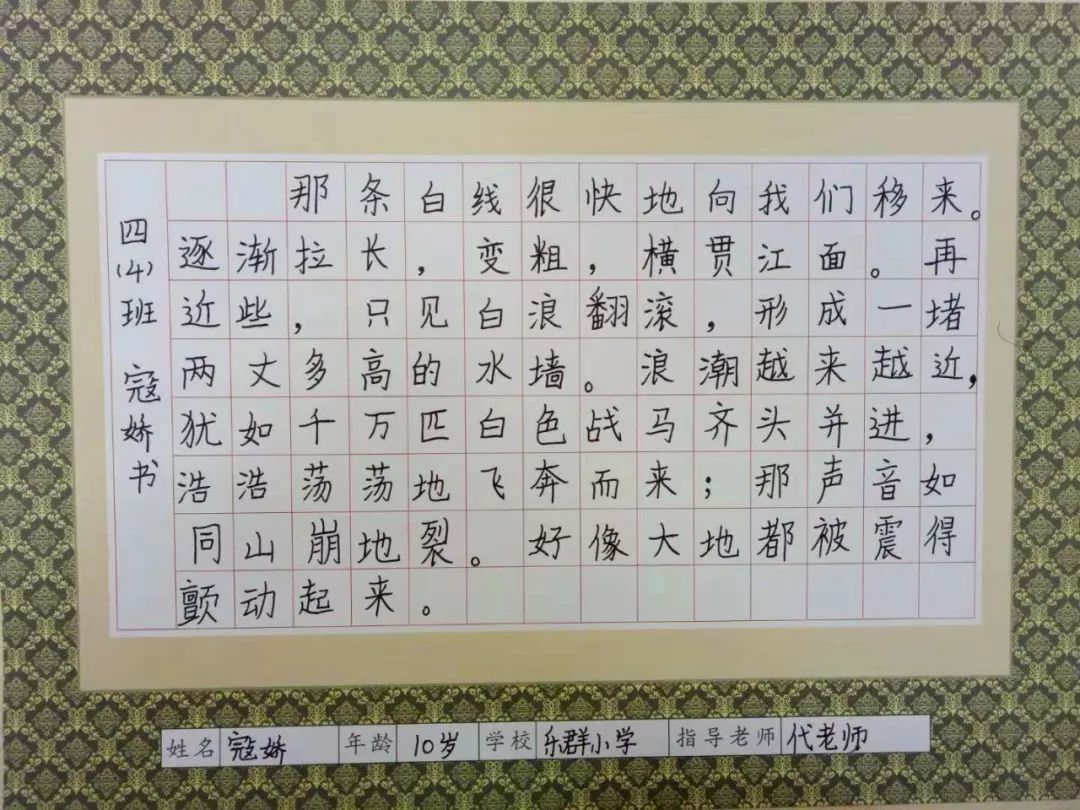 那条白线很快地向我们移来。
逐渐拉长，变粗，横贯江面。再
近些，只见白浪翻滚，形成一堵
两丈多高的水墙。浪潮越来越近，
犹如千万匹白色战马齐头并进，
浩浩荡荡地飞奔而来；那声音如
同山崩地裂。好像大地都被震得
颤动起来。
四(4)班 寇娇书
姓名 寇娇 年龄 10岁 学校 乐群小学 指导老师 代老师